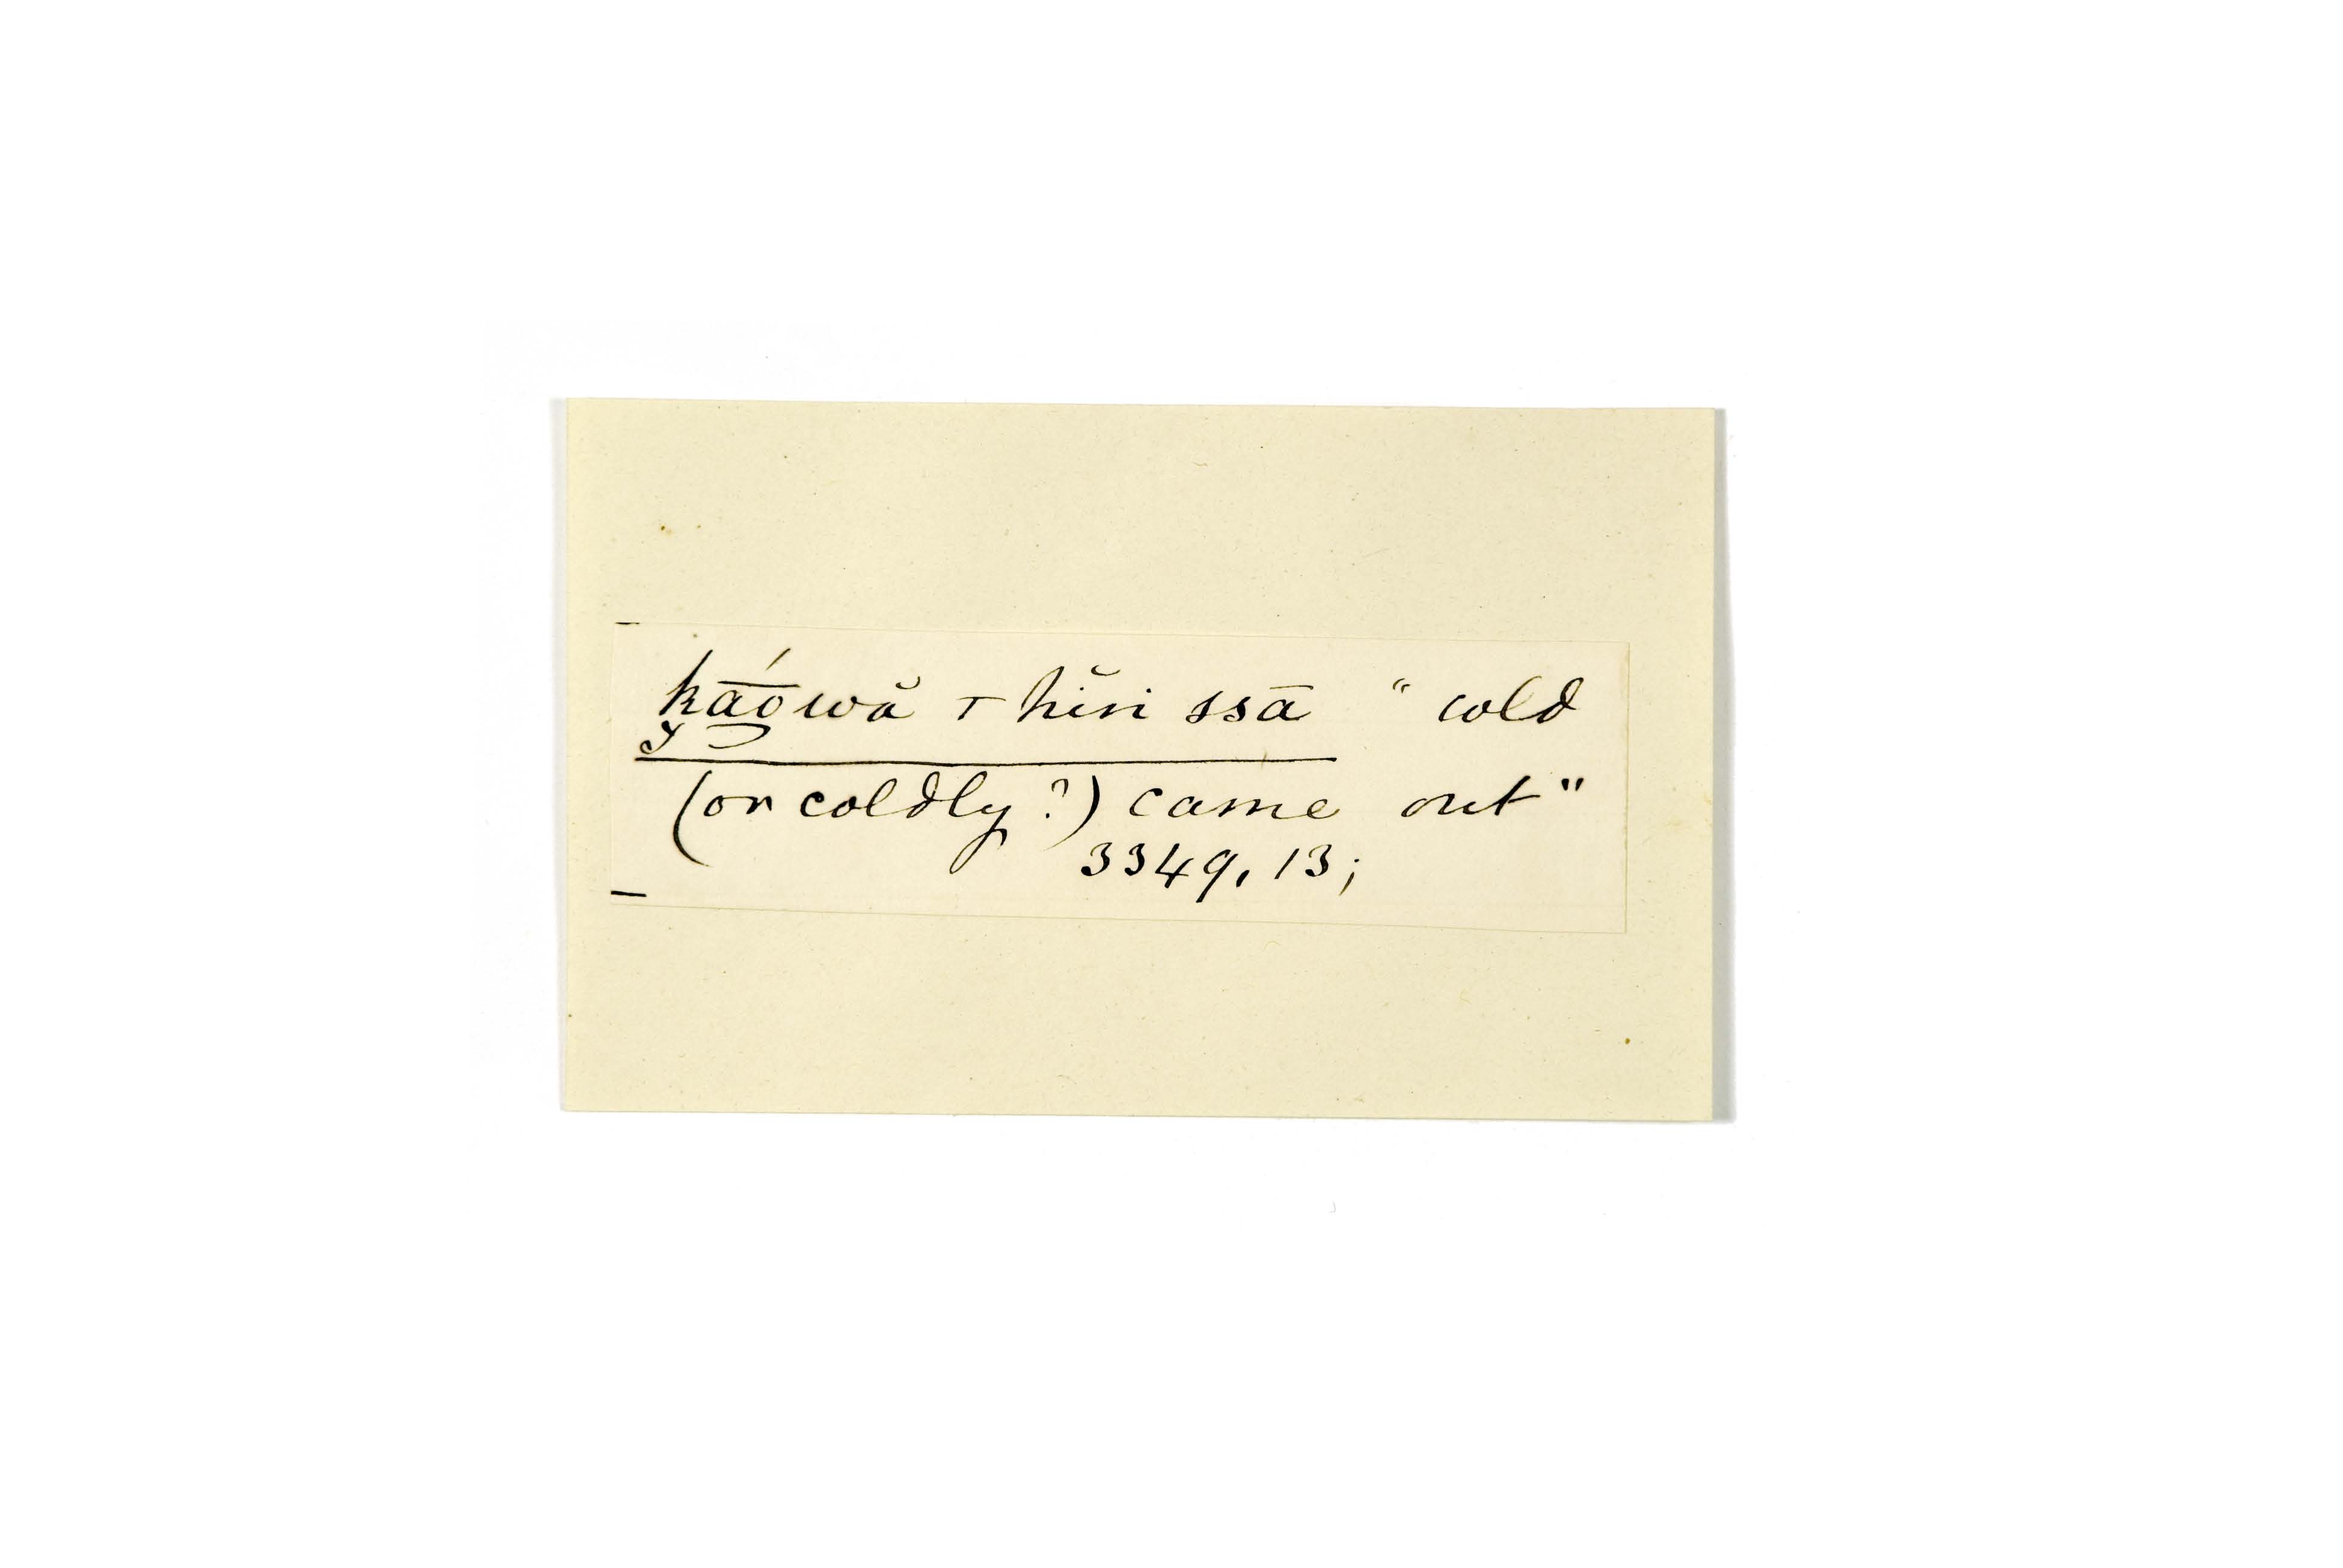 k̠a͞ówă ⊤ hĭn ssā “ cold
(or coldly?) came out"
3349, 13;